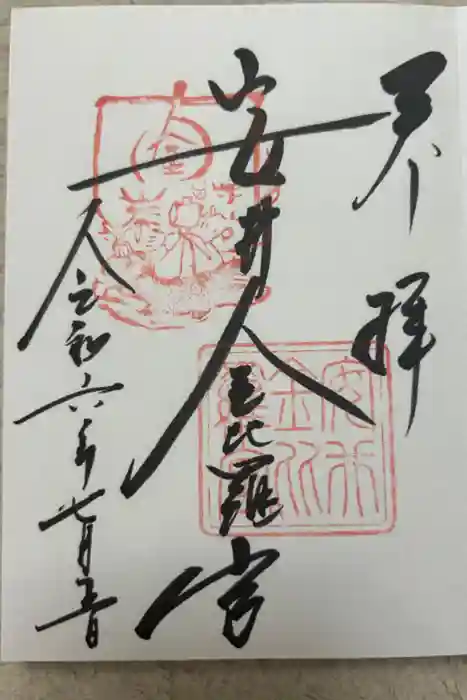 奉拝
安井金比羅宮
令和六年七月五日